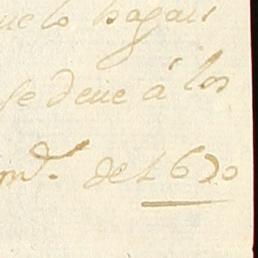 lo hagais
se deue á los
m.d de 1620